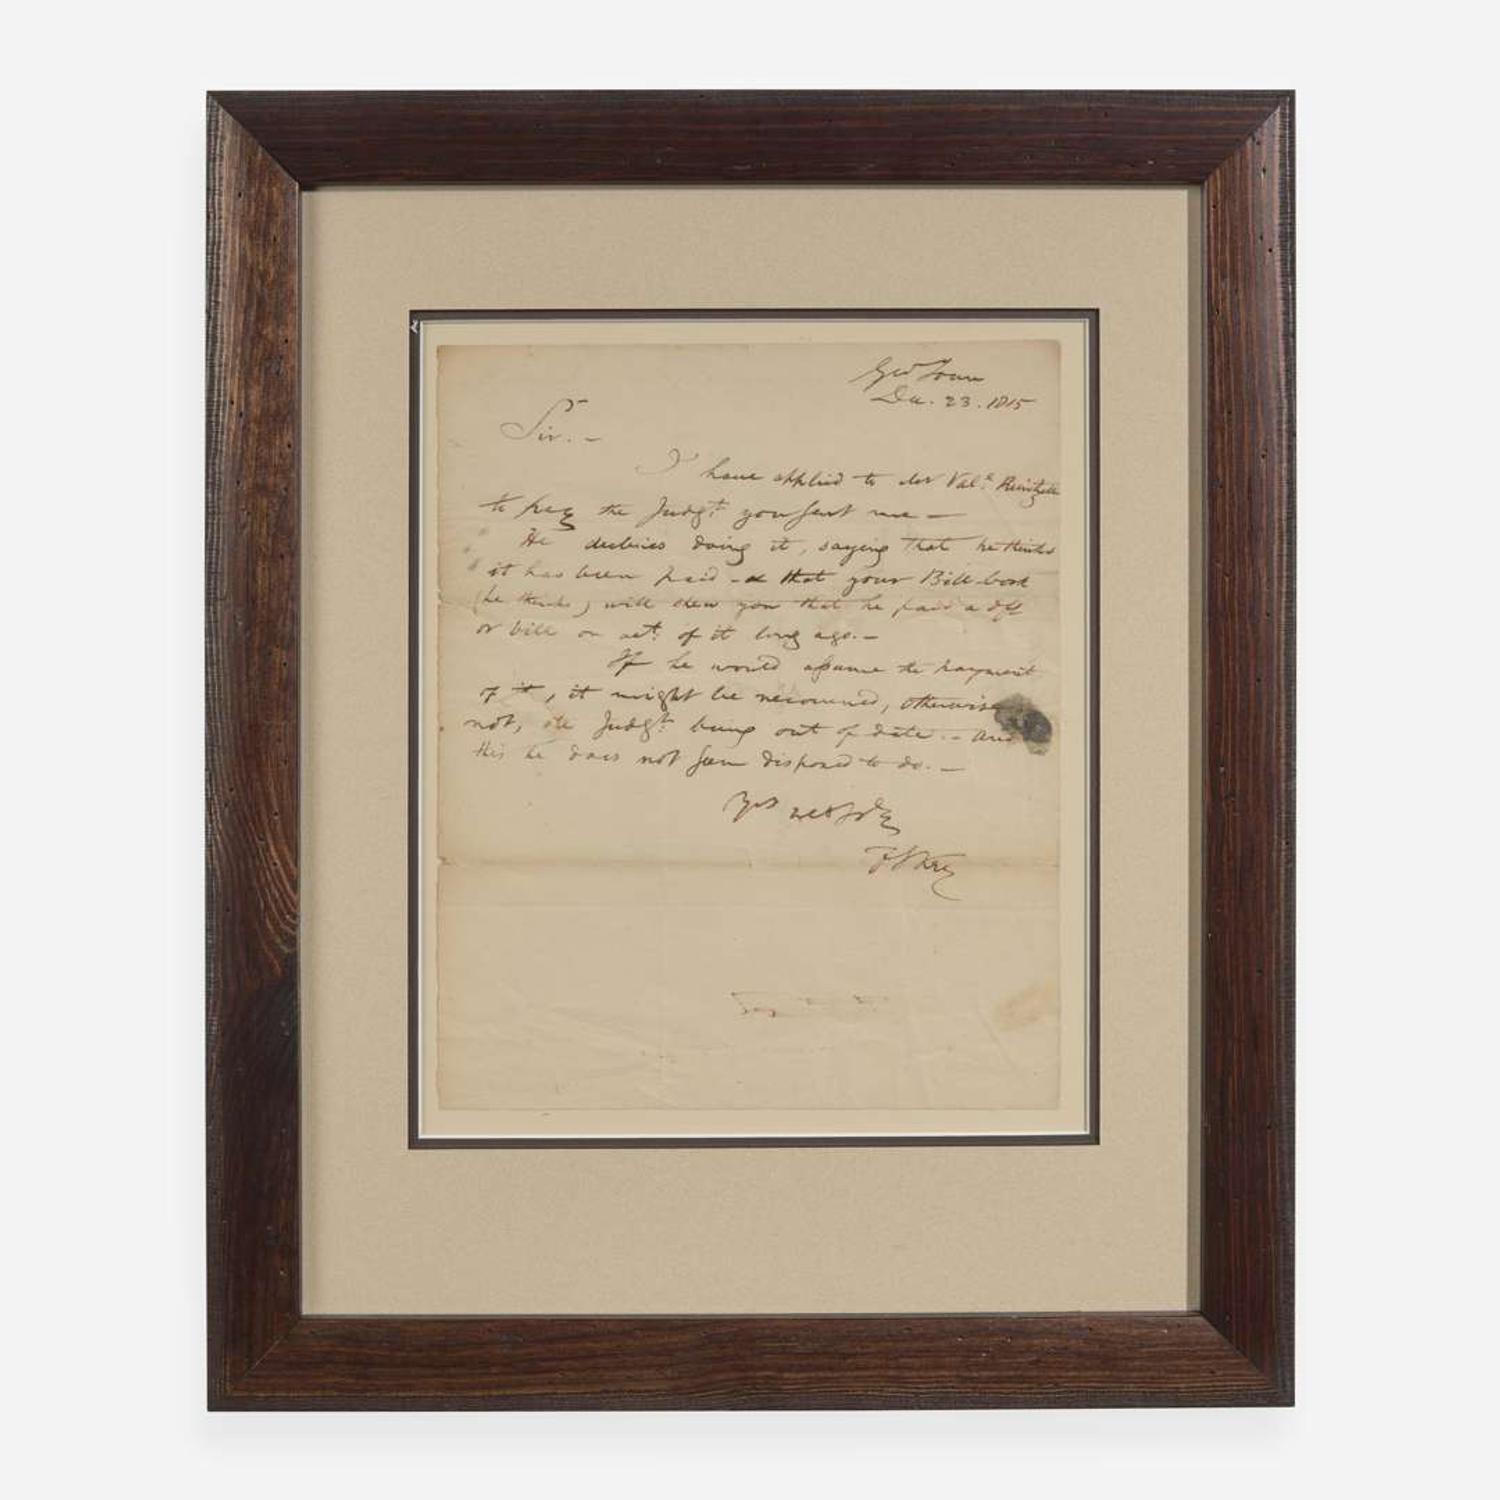 Geo Town
Dec. 23. 1815
Sir. –
I have applied to Mr Val.e Reintzell
to pay the Judgt. you sent me –
He declines doing it, saying that he thinks
it has been paid – & that your Bill-book
(he thinks) will shew you that he paid a dft
or bill on act. of it long ago. –
If he would assume the payment
of it, it might be recovered, otherwise
not, the Judgt. being out of date. – and
this he does not seem disposed to do. –
Yrs
F S Key